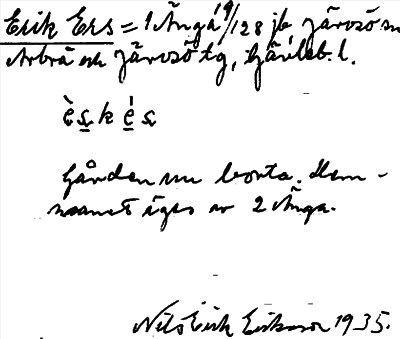 Erik Ers = 1 Ängå 9/128 jb Järvsö sn
Arbrå och Järvsö tg, Gävleb. l.
è s̱ k é̱ s
Gården nu borta. Hem-
manet äges av 2 Änga.
Nils Erik Eriksson 1935.